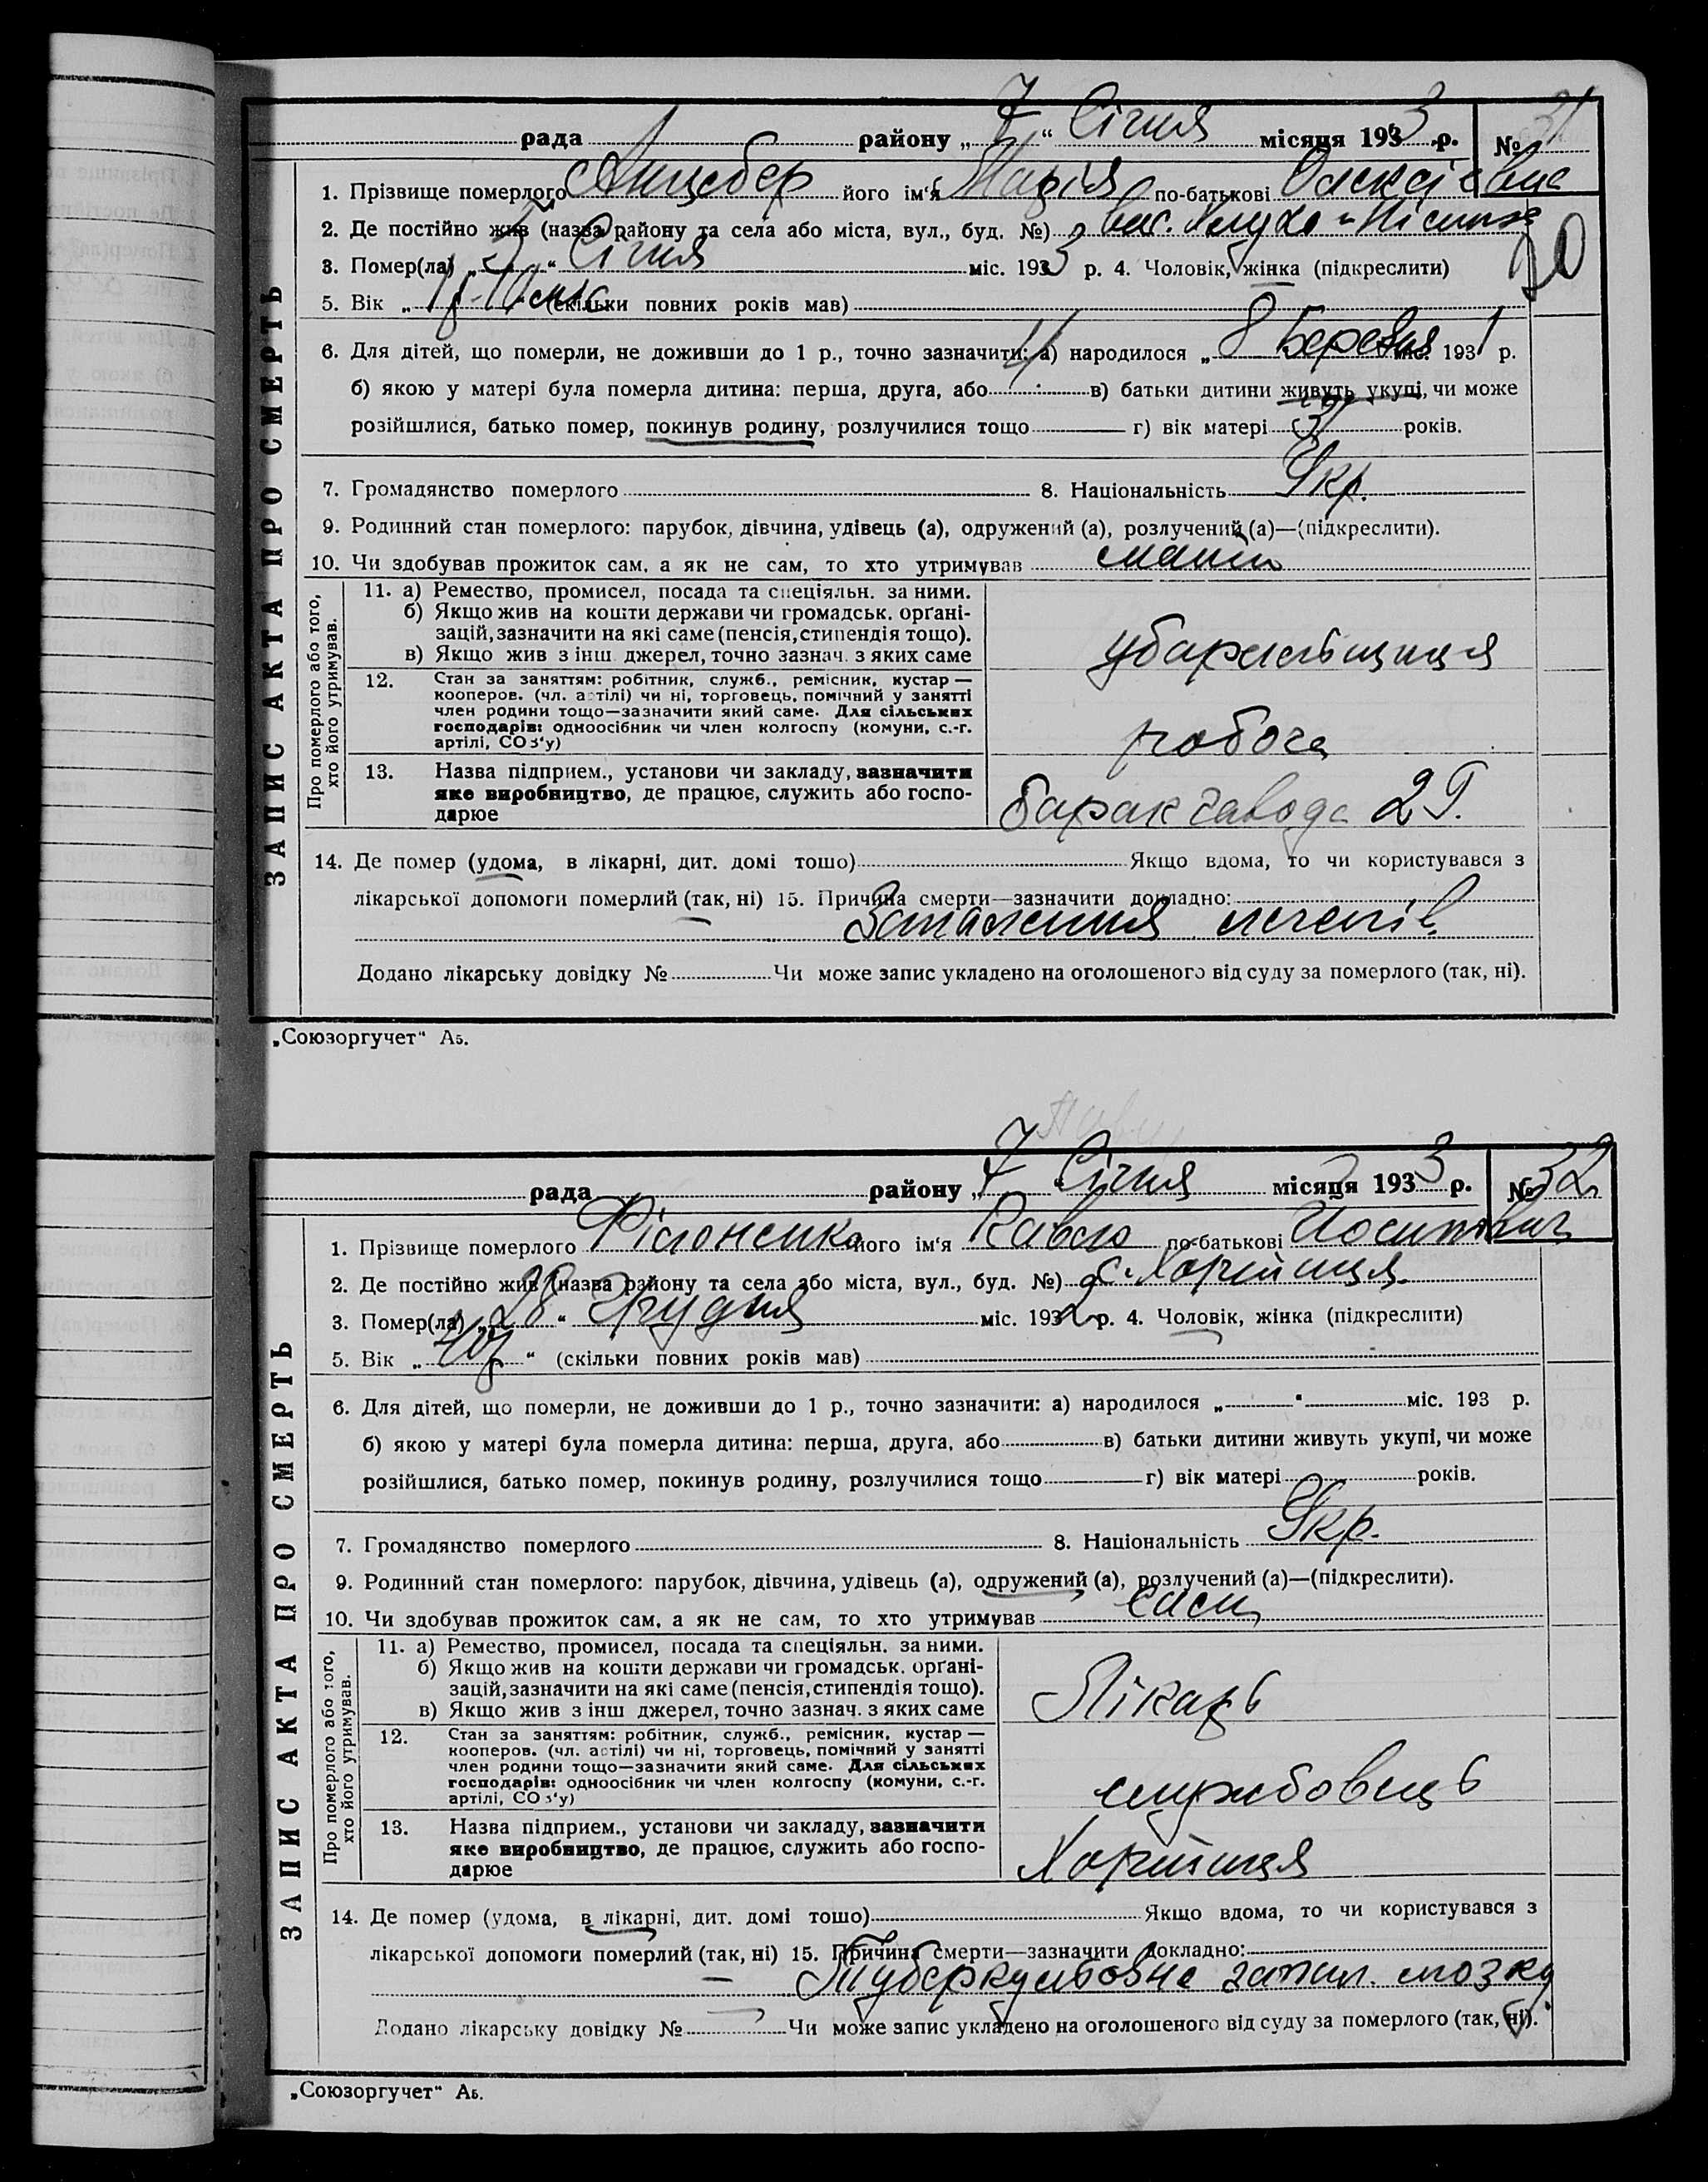 рада района „7“ Січня місяця 1933 р. № 31
ЗАПИС АКТА ПРО СМЕРТЬ
1. Прізвище померлого його ім'я Марія по-батькові Олексіївна
2. Де постійно жив (назва району та села або міста, вул., буд. №)
3. Помер(ла) „3“ Січня міс. 1933 р. 4. Чоловік, жінка (підкреслити)
5. Вік „1 р. 10 міс (скільки повних років мав)
6. Для дітей, що померли, не доживши до 1 р., точно зазначити: а) народилося „8 Березня міс. 1931 р.
б) якою у матері була померла дитина: перша, друга, або 4 в) батьки дитини живуть укупі, чи може
розійшлися, батько помер, покинув родину, розлучилися тощо г) вік матері років.
7. Громадянство померлого 8. Національність Укр.
9. Родинний стан померлого: парубок, дівчина, удівець (а), одружений (а), розлучений (а)—(підкреслити).
10. Чи здобував прожиток сам, а як не сам, то хто утримував мати
Про померлого або того,
хто його утримував.
11. а) Ремество, промисел, посада та спеціяльн. за ними.
б) Якщо жив на кошти держави чи громадськ. орґані-
зацій, зазначити на які саме (пенсія, стипендія тощо).
в) Якщо жив з інш джерел, точно зазнач. з яких саме
12. Стан за заняттям: робітник, служб., ремісник, кустар —
кооперов. (чл. артілі) чи ні, торговець, помічний у занятті
член родини тощо—зазначити який саме. Для сільських
господарів: одноосібник чи член колгоспу (комуни, с.-г.
артілі, СОЗ'у)
робоча
13. Назва підприєм., установи чи закладу, зазначити
яке виробництво, де працює, служить або госпо-
дарює
барак завода 29.
14. Де помер (удома, в лікарні, дит. домі тощо) Якщо вдома, то чи користувався з
лікарської допомоги померлий (так, ні) 15. Причина смерти—зазначити докладно:
Запалення легенів.
Додано лікарську довідку № Чи може запис укладено на оголошеного від суду за померлого (так, ні).
„Союзоргучет“ А5.
рада району „7“ Січня місяця 1933 р. № 32
ЗАПИС АКТА ПРО СМЕРТЬ
1. Прізвище померлого Філоненко його ім'я Павло по-батькові Йосипович
2. Де постійно жив (назва району та села або міста, вул., буд. №) с. Хортиця
3. Помер(ла) „28“ Грудня міс. 1932 р. 4. Чоловік, жінка (підкреслити)
5. Вік „ “ (скільки повних років мав)
6. Для дітей, що померли, не доживши до 1 р., точно зазначити: а) народилося „ “ міс. 193 р.
б) якою у матері була померла дитина: перша, друга, або в) батьки дитини живуть укупі, чи може
розійшлися, батько помер, покинув родину, розлучилися тощо г) вік матері років.
7. Громадянство померлого 8. Національність Укр.
9. Родинний стан померлого: парубок, дівчина, удівець (а), одружений (а), розлучений (а)—(підкреслити).
10. Чи здобував прожиток сам, а як не сам, то хто утримував сам
Про померлого або того,
хто його утримував.
11. а) Ремество, промисел, посада та спеціяльн. за ними.
б) Якщо жив на кошти держави чи громадськ. орґані-
зацій, зазначити на які саме (пенсія, стипендія тощо).
в) Якщо жив з інш джерел, точно зазнач. з яких саме
Лікарь
12. Стан за заняттям: робітник, служб., ремісник, кустар —
кооперов. (чл. артілі) чи ні, торговець, помічний у занятті
член родини тощо—зазначити який саме. Для сільських
господарів: одноосібник чи член колгоспу (комуни, с.-г.
артілі, СОЗ'у)
службовець
13. Назва підприєм., установи чи закладу, зазначити
яке виробництво, де працює, служить або госпо-
дарює
Хортиця
14. Де помер (удома, в лікарні, дит. домі тощо) Якщо вдома, то чи користувався з
лікарської допомоги померлий (так, ні) 15. Причина смерти—зазначити докладно:
Туберкульозне запал. мозку
Додано лікарську довідку № Чи може запис укладено на оголошеного від суду за померлого (так, ні).
„Союзоргучет“ А5.